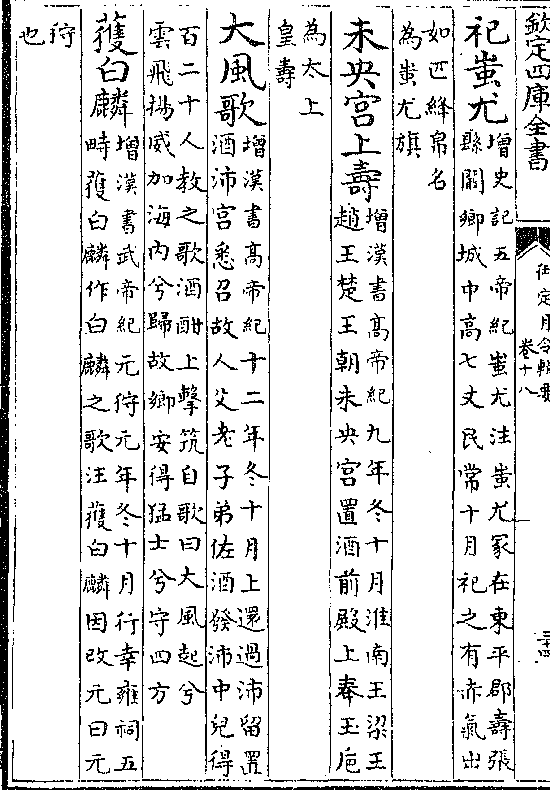 欽定四庫全書
御定月令輯要
卷十八
祀蚩尤
增史記五帝紀蚩尤注蚩尤冢在東平郡壽張
縣闞鄉城中高七丈民常十月祀之有赤氣出
如匹絳帛名
為蚩尤旗
未央宫上壽
增漢書髙帝紀九年冬十月淮南王梁王
趙王楚王朝未央宫置酒前殿上奉玉巵
為太上
皇壽
大風歌
增漢書髙帝紀十二年冬十月上還過沛留置
酒沛宫悉召故人父老子弟佐酒發沛中兒得
百二十人教之歌酒酣上擊筑自歌曰大風起兮
雲飛揚威加海内兮歸故鄉安得猛士兮守四方
獲白麟
增漢書武帝紀元狩元年冬十月行幸雍祠五
畤獲白麟作白麟之歌注獲白麟因改元曰元
狩
也